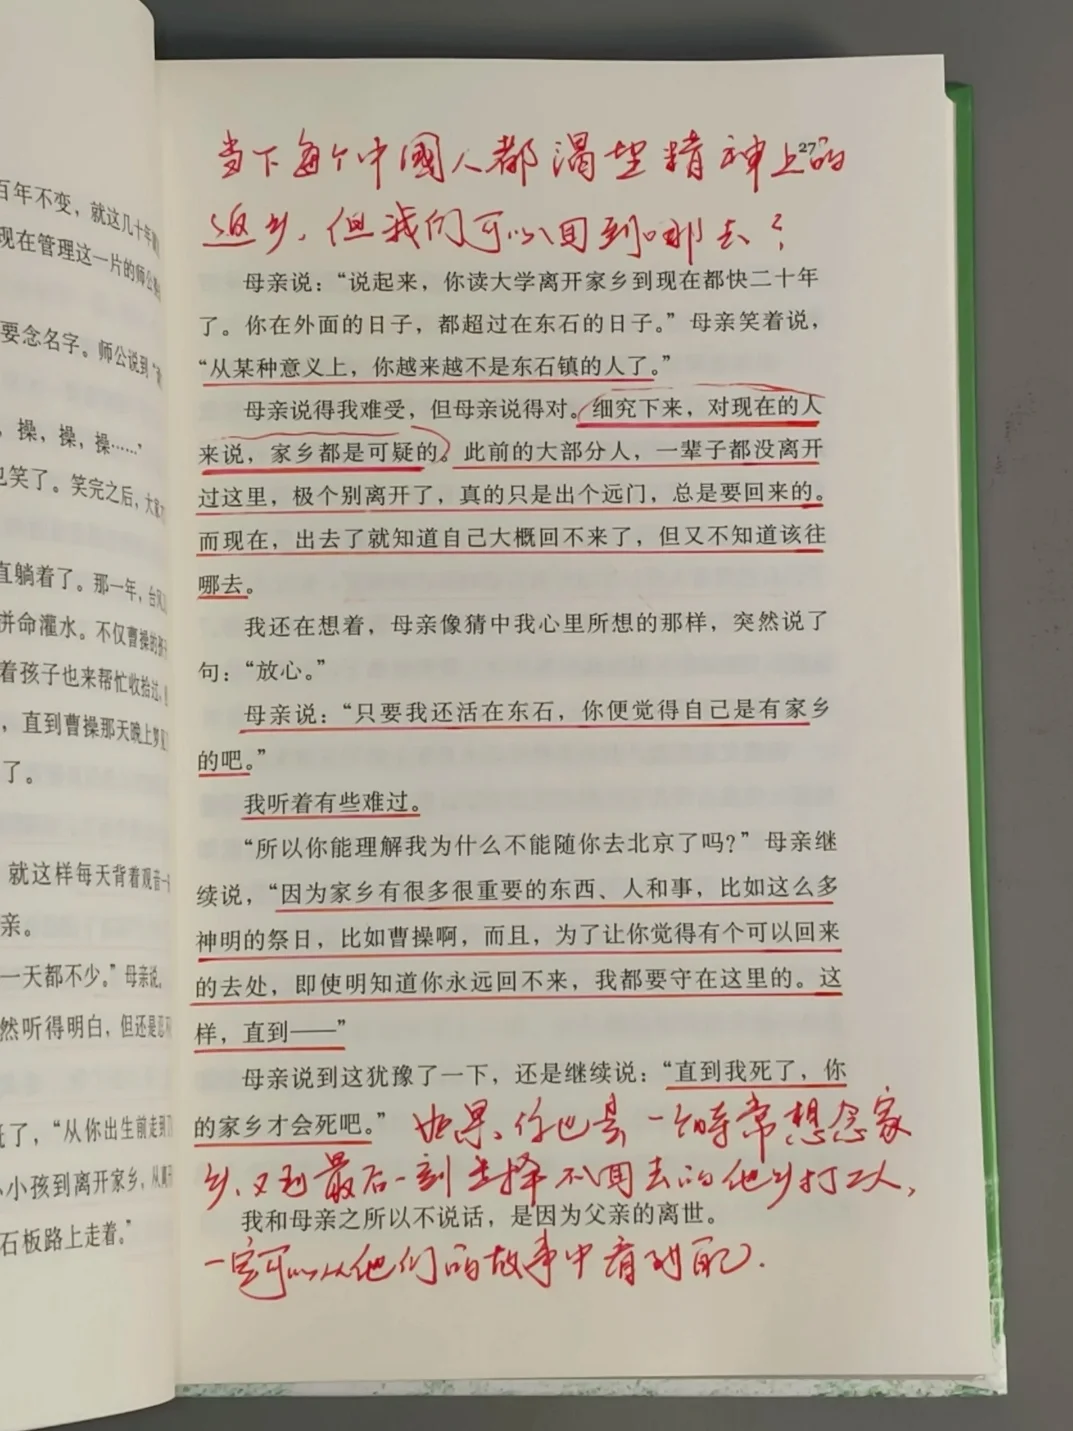 百年不变，就这几十年
现在管理这一片的师公
要念名字。师公说到“
，操，操，操……”
也笑了。笑完之后，大家
直躺着了。那一年，台风
拼命灌水。不仅曹操的
着孩子也来帮忙收拾过，
，直到曹操那天晚上梦
了。
就这样每天背着观音一
亲。
一天都不少。”母亲说。
然听得明白，但还是忍
托了，“从你出生前走到
小小孩到离开家乡，从
石板路上走着。”
27
当下每个中國人都渴望精神上的
返乡，但我们可以回到哪去？
母亲说：“说起来，你读大学离开家乡到现在都快二十年
了。你在外面的日子，都超过在东石的日子。”母亲笑着说，
“从某种意义上，你越来越不是东石镇的人了。”
母亲说得我难受，但母亲说得对。细究下来，对现在的人
来说，家乡都是可疑的。此前的大部分人，一辈子都没离开
过这里，极个别离开了，真的只是出个远门，总是要回来的。
而现在，出去了就知道自己大概回不来了，但又不知道该往
哪去。
我还在想着，母亲像猜中我心里所想的那样，突然说了
句：“放心。”
母亲说：“只要我还活在东石，你便觉得自己是有家乡
的吧。”
我听着有些难过。
“所以你能理解我为什么不能随你去北京了吗？”母亲继
续说，“因为家乡有很多很重要的东西、人和事，比如这么多
神明的祭日，比如曹操啊，而且，为了让你觉得有个可以回来
的去处，即使明知道你永远回不来，我都要守在这里的。这
样，直到——”
母亲说到这犹豫了一下，还是继续说：“直到我死了，你
的家乡才会死吧。”
如果，你也是一个时常想念家
乡，又到最后一刻选择不回去的他乡打工人，
我和母亲之所以不说话，是因为父亲的离世。
一定可以从他们的故事中看到自己．